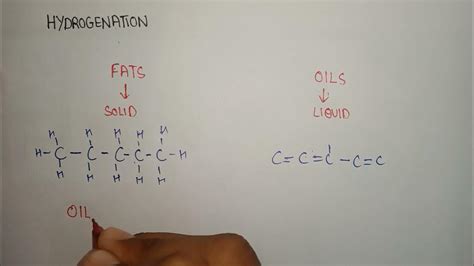 HYDROGENATION
FATS
↓
SOLID
OILS
↓
LIQUID
H H H H
H-C-C-C-C-C-H
H H H H H
C=C=C-C=C
OIL